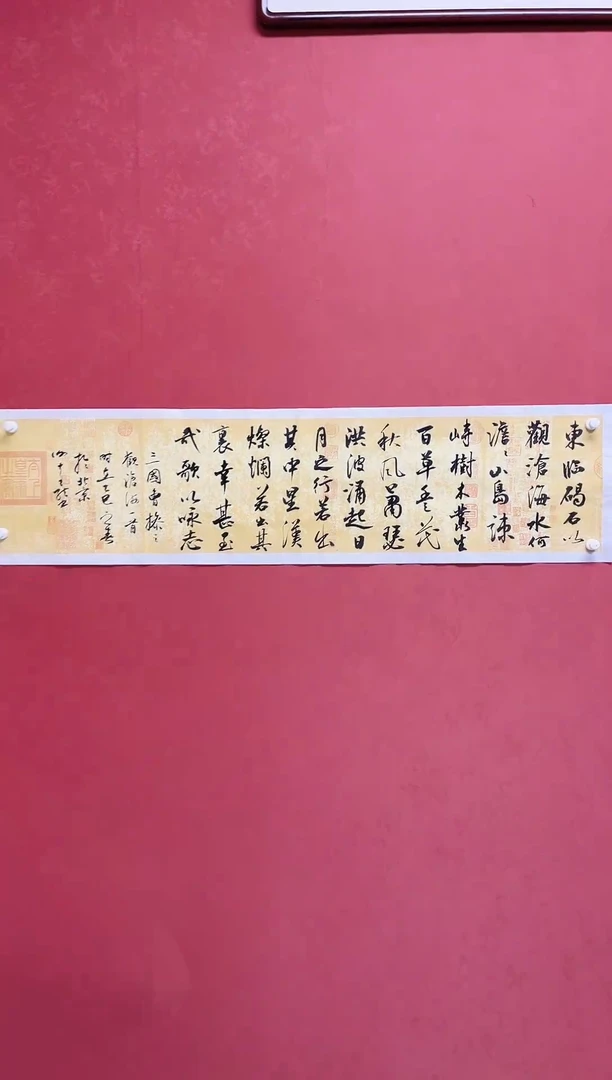 東临碣石以
觀滄海水何
澹〻山島竦
峙樹木叢生
百草豐茂
秋风蕭瑟
洪波涌起日
月之行若出
其中星漢
燦爛若出其
裏幸甚至
哉歌以咏志
三國曹操之
觀滄海一首
时
於北京